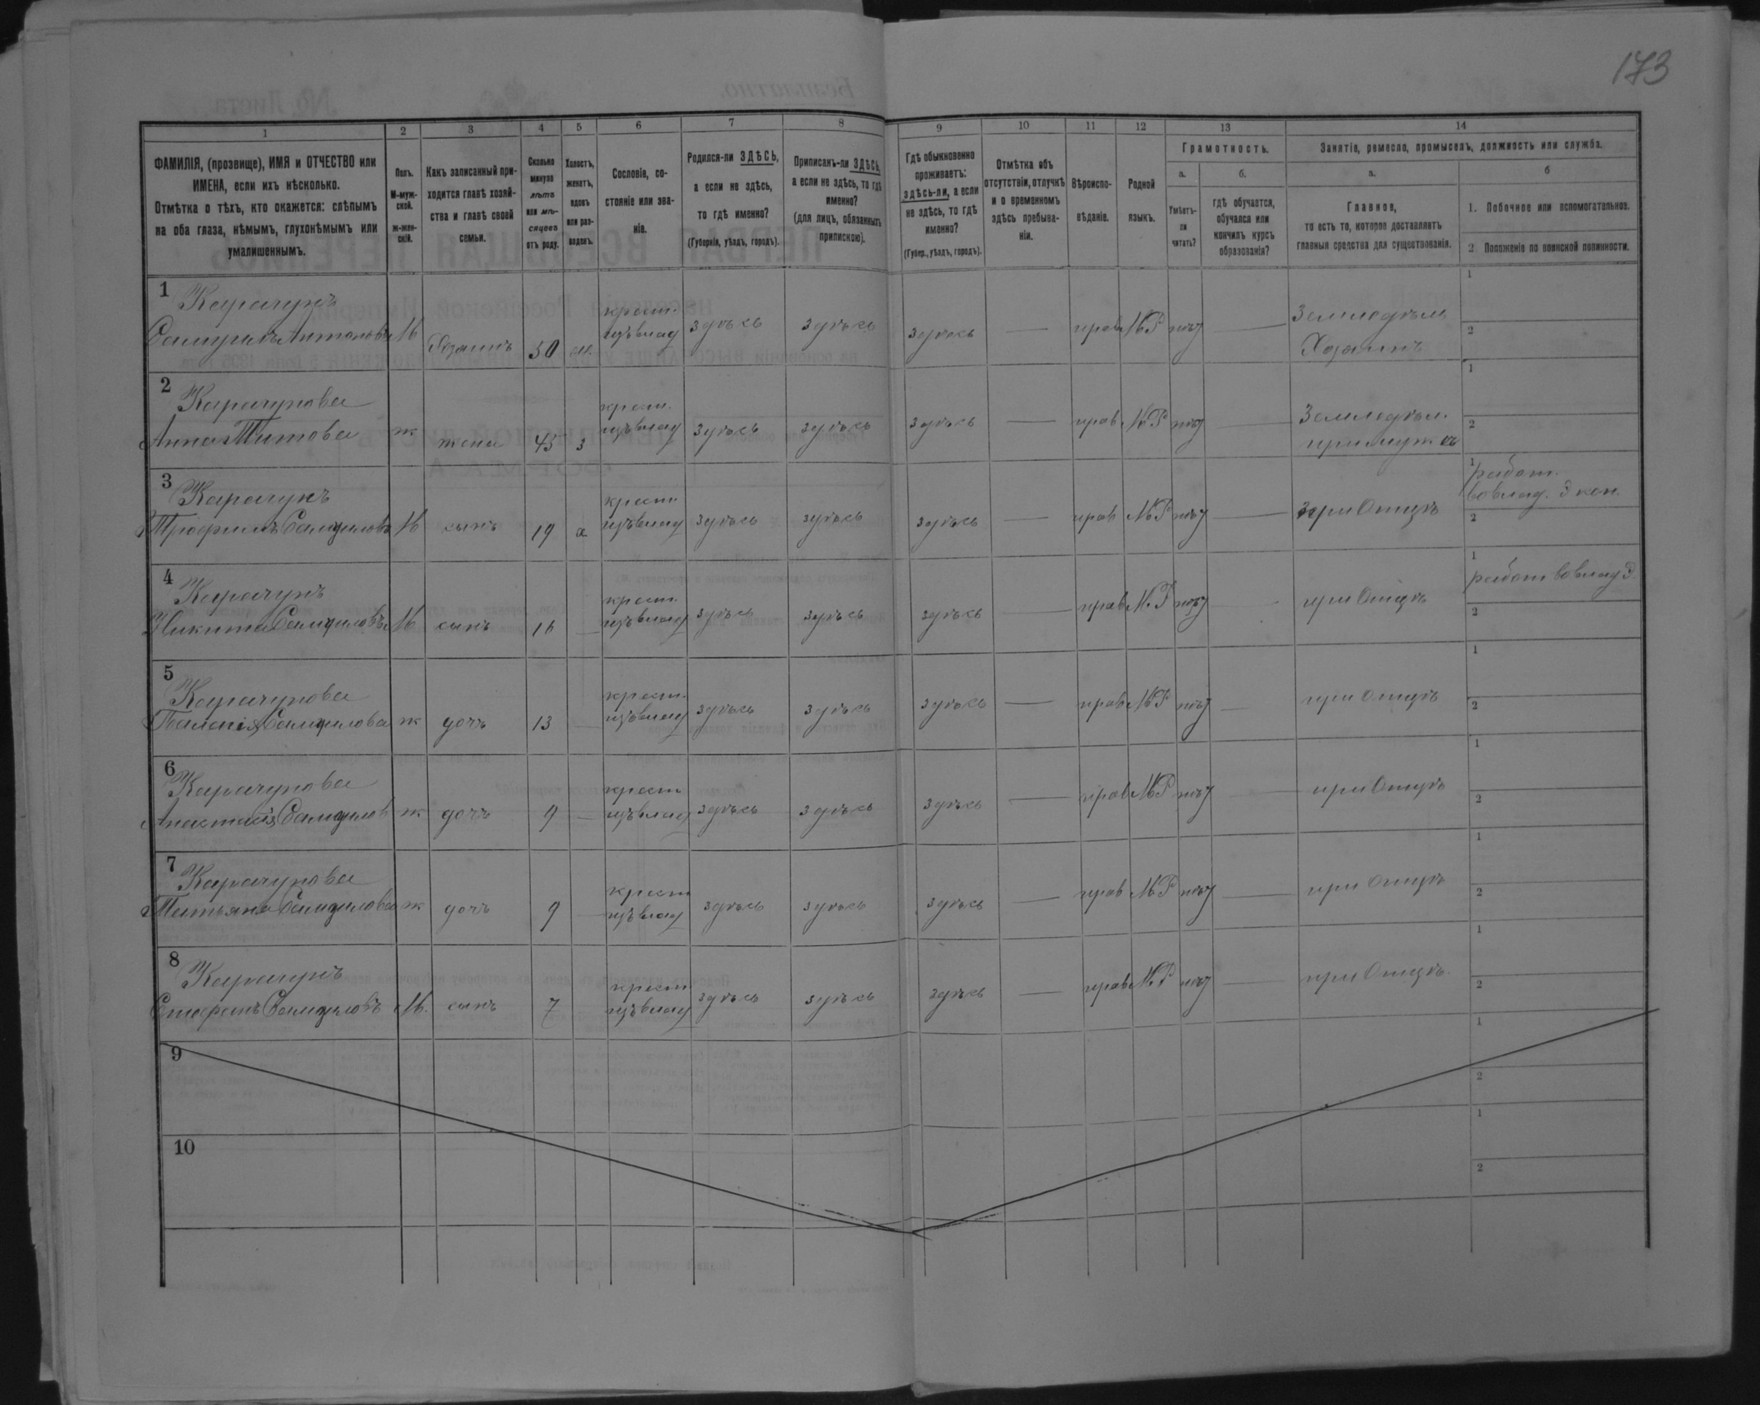 173
1 2 3 4 5 6 7 8 9 10 11 12 13 14
ФАМИЛІЯ, (прозвище), ИМЯ и ОТЧЕСТВО или
ИМЕНА, если ихъ нѣсколько.
Отмѣтка о тѣхъ, кто окажется: слѣпымъ
на оба глаза, нѣмымъ, глухонѣмымъ или
умалишеннымъ.
Полъ.
М-муж-
ской.
ж-жен-
скій.
Какъ записанный при-
ходится главѣ хозяй-
ства и главѣ своей
семьи.
Сколько
минуло
лѣтъ
или мѣ-
сяцевъ
отъ роду.
Холостъ,
женатъ,
вдовъ
или раз-
веденъ.
Сословіе, со-
стояніе или зва-
ніе.
Родился-ли ЗДѢСЬ,
а если не здѣсь,
то гдѣ именно?
(Губернія, уѣздъ, городъ).
Приписанъ-ли ЗДѢСЬ,
а если не здѣсь, то гдѣ
именно?
(для лицъ, обязанныхъ
припискою).
Гдѣ обыкновенно
проживаетъ:
здѣсь-ли, а если
не здѣсь, то гдѣ
именно?
(Губер., уѣздъ, городъ).
Отмѣтка объ
отсутствіи, отлучкѣ
и о временномъ
здѣсь пребыва-
ніи.
Вѣроиспо-
вѣданіе.
Родной
языкъ.
Грамотность.
а.
Умѣетъ-
ли
читать?
б.
гдѣ обучается,
обучался или
кончилъ курсъ
образованія?
Занятіе, ремесло, промыселъ, должность или служба.
а.
Главное,
то есть то, которое доставляетъ
главныя средства для существованія.
б
1. Побочное или вспомогательное.
2 Положеніе по воинской повинности.
1 Карачунъ крест. Земледѣл. 1
Самуилъ Антоновъ М Хозяинъ 50 изъ влад здѣсь здѣсь здѣсь — прав М.Р нѣт — Хозяинъ 2
2 Карачунова крест. Земледѣл. 1
Анна Титова ж жена 45 з изъ влад здѣсь здѣсь здѣсь — прав М.Р нѣт — при мужѣ 2
3 Карачунъ крест. 1 работ.
Трофимъ Самуиловъ М сынъ 19 х изъ влад здѣсь здѣсь здѣсь — прав М.Р нѣт — при Отцѣ во влад. Э кон. 2
4 Карачунъ крест. 1 работ во влад Э.
Никита Самуиловъ М сынъ 16 — изъ влад здѣсь здѣсь здѣсь — прав М.Р нѣт - при Отцѣ 2
5 Карачунова крест. 1
Самуилова ж дочь 13 — изъ влад здѣсь здѣсь здѣсь — прав М.Р нѣт — при Отцѣ 2
6 Карачунова крест 1
Анастасія Самуилов ж дочь 9 — изъ влад здѣсь здѣсь здѣсь — прав М.Р нѣт — при Отцѣ 2
7 Карачунова крест 1
Татьяна Самуилова ж дочь 9 — изъ влад здѣсь здѣсь здѣсь — прав М.Р нѣт — при Отцѣ 2
8 Карачунъ крест 1
Стефанъ Самуиловъ М. сынъ 7 изъ влад здѣсь здѣсь здѣсь — прав М.Р нѣт — при Отцѣ 2
9 1
2
10 1
2